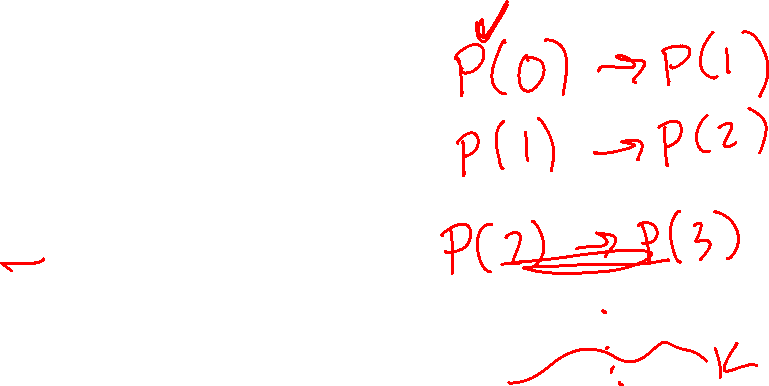 P(0) → P(1)
P(1) → P(2)
P(2) → P(3)
⋮